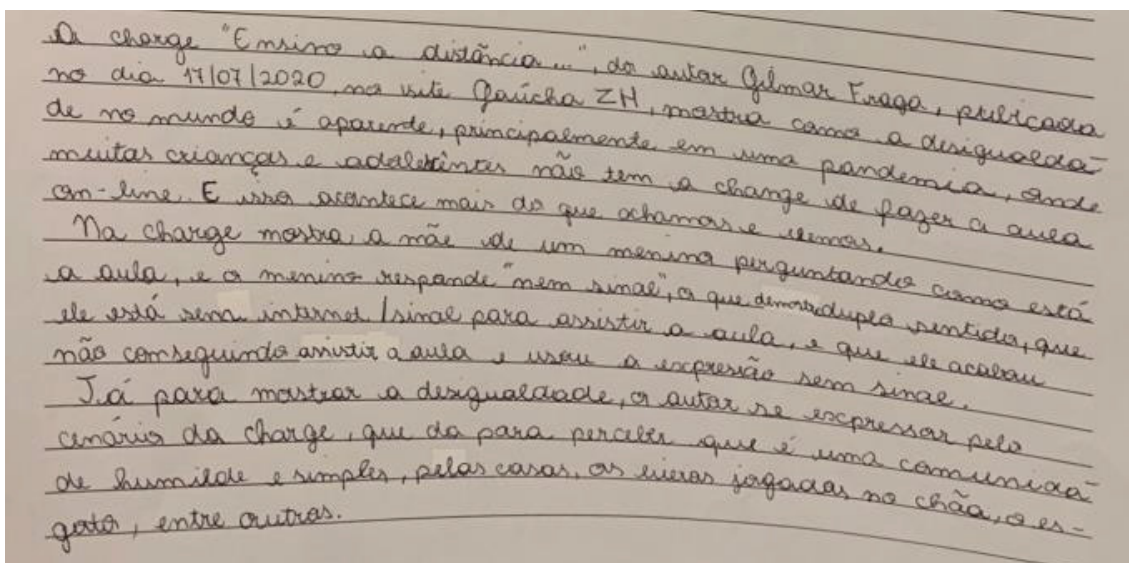 A charge "Ensino a distância...", do autor Gilmar Fraga, publicada
no dia 17/07/2020, no site Gaúcha ZH, mostra como a desigualda-
de no mundo é aparende, principalmente em uma pandemia, onde
muitas crianças e adolescintes não tem a change de fazer a aula
on-line. E isso acontece mais do que achamos e vemos.
Na charge mostra, a mãe de um menino perguntando como está
a aula, e o menino responde "nem sinal", o que demonstra duplo sentido, que
ele está sem internet/sinal para assistir a aula, e que ele acabou
não conseguindo assistir a aula e usou a expresião sem sinal.
Já para mostrar a desigualdade, o autor se expressor pelo
cenário da charge, que da para perceber que é uma comunida-
de humilde e simples, pelas casas, os lixos jogados no chão, o es-
goto, entre outros.